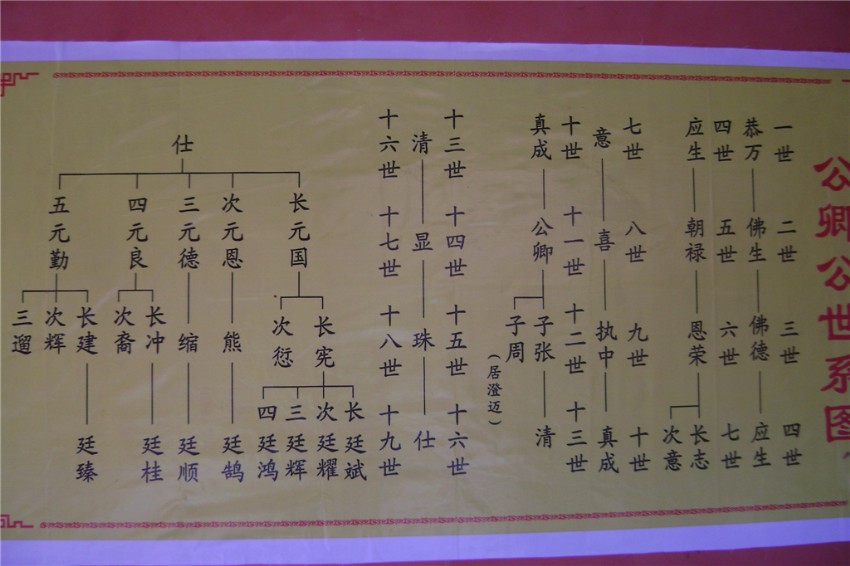 公卿公世系图
一世 二世 三世 四世
恭万 佛生 佛德 应生
四世 五世 六世 七世
应生 朝禄 恩荣 长志
次意
七世 八世 九世 十世
意 喜 执中 真成
十世 十一世 十二世 十三世
真成 公卿 子张 清
子周
(居澄迈)
十三世 十四世 十五世 十六世
清 显 珠 仕
十六世 十七世 十八世 十九世
仕
长元国
长宪
长廷斌
次廷耀
三廷辉
四廷鸿
次愆
次元恩 熊 廷鹄
三元德 缩 廷顺
四元良
长冲 廷桂
次裔
五元勤
长建 廷臻
次辉
三遛